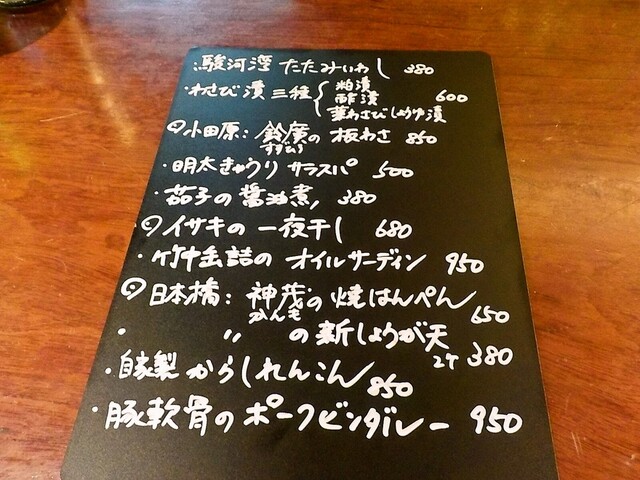 ・駿河湾 たたみいわし 380
・わさび漬 三種 { 粕漬 酢漬 茎わさびしょうゆ漬 600
小田原: 鈴廣の 板わさ 850
すずひろ
・明太きゅうり サラスパ 500
・茄子の 醤油煮 380
イサキの 一夜干し 680
・竹中缶詰の オイルサーディン 950
日本橋: 神茂の 焼はんぺん 650
かんも
・ 〃 の 新しょうが天 2ケ 380
・自家製 からしれんこん 850
・豚軟骨の ポークビンダルー 950